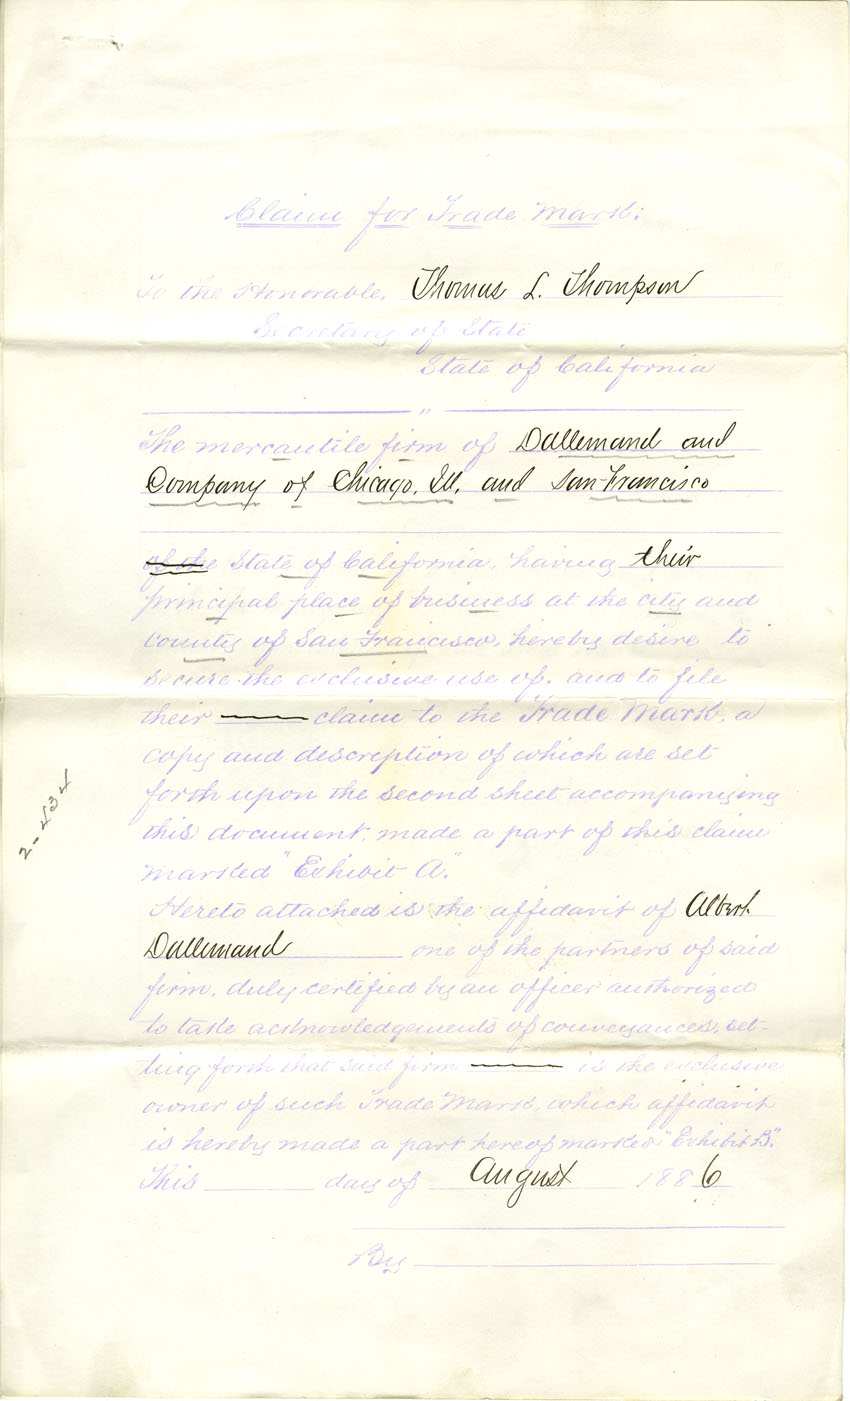 Claim for Trade Mark:
To the Honorable, Thomas L. Thompson
Secretary of State
State of California
"
The mercantile firm of Dallemand and
Company of Chicago, Ill, and San Francisco
of the State of California, having their
principal place of business at the city and
county of San Francisco, hereby desire to
secure the exclusive use of, and to file
their claim to the Trade Mark, a
copy and description of which are set
forth upon the second sheet accompanying
this document, made a part of this claim
marked "Exhibit A".
Hereto attached is the affidavit of Albert
Dallemand one of the partners of said
firm, duly certified by an officer authorized
to take acknowledgements of conveyances, set-
ting forth that said firm is the exclusive
owner of such Trade Mark, which affidavit
is hereby made a part hereof marked "Exhibit B".
This day of August 1886
By
2-434